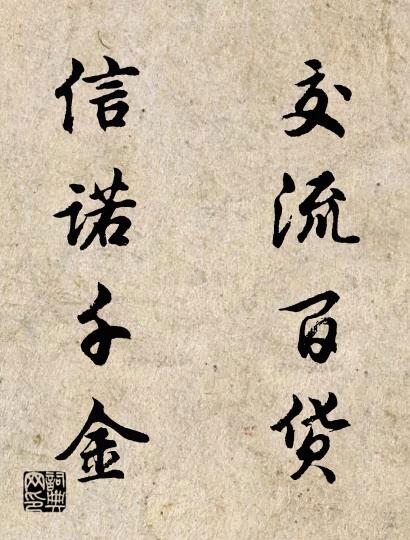 交流百货
信诺千金
詞典网印